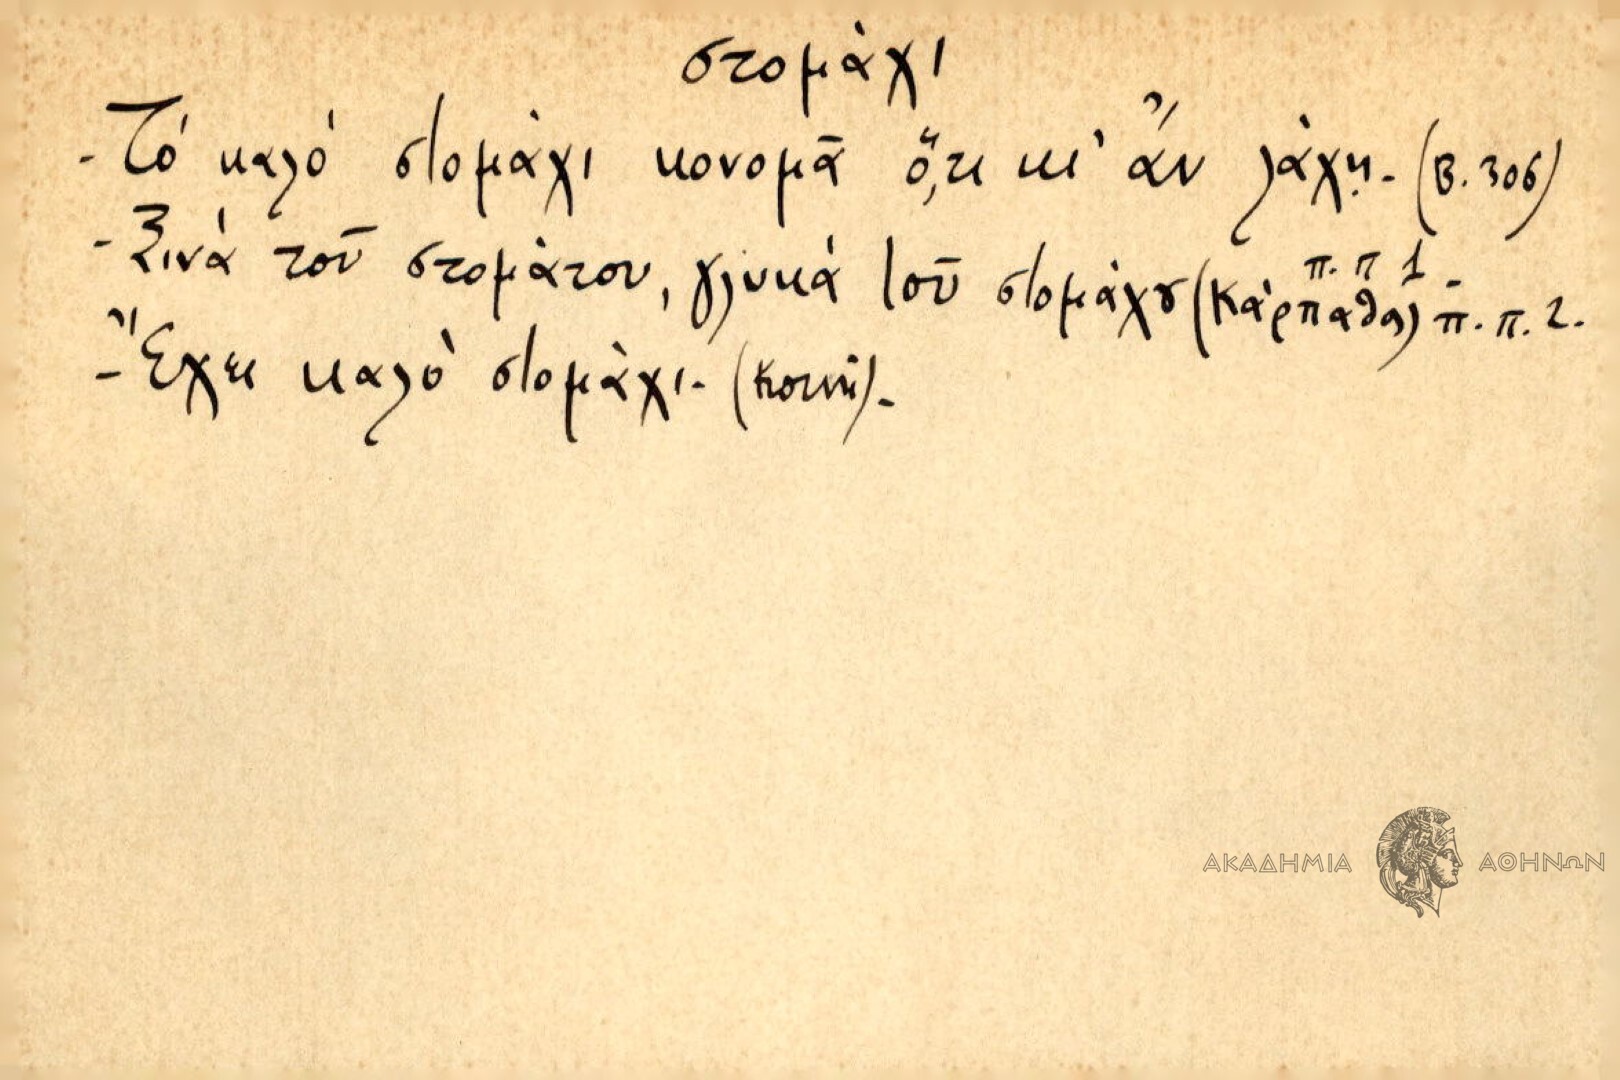 στομάχι
- Τό καλό στομάχι κονομᾶ ὅ,τι κι' ἄν λάχῃ. (Β. 306)
- Ξινά τοῦ στομάτου, γλυκά τοῦ στομάχου (Κάρπαθος) π. π 1 - π. π. 2.
- Ἔχει καλό στομάχι. (Κοινή).
ΑΚΑΔΗΜΙΑ ΑΘΗΝΩΝ